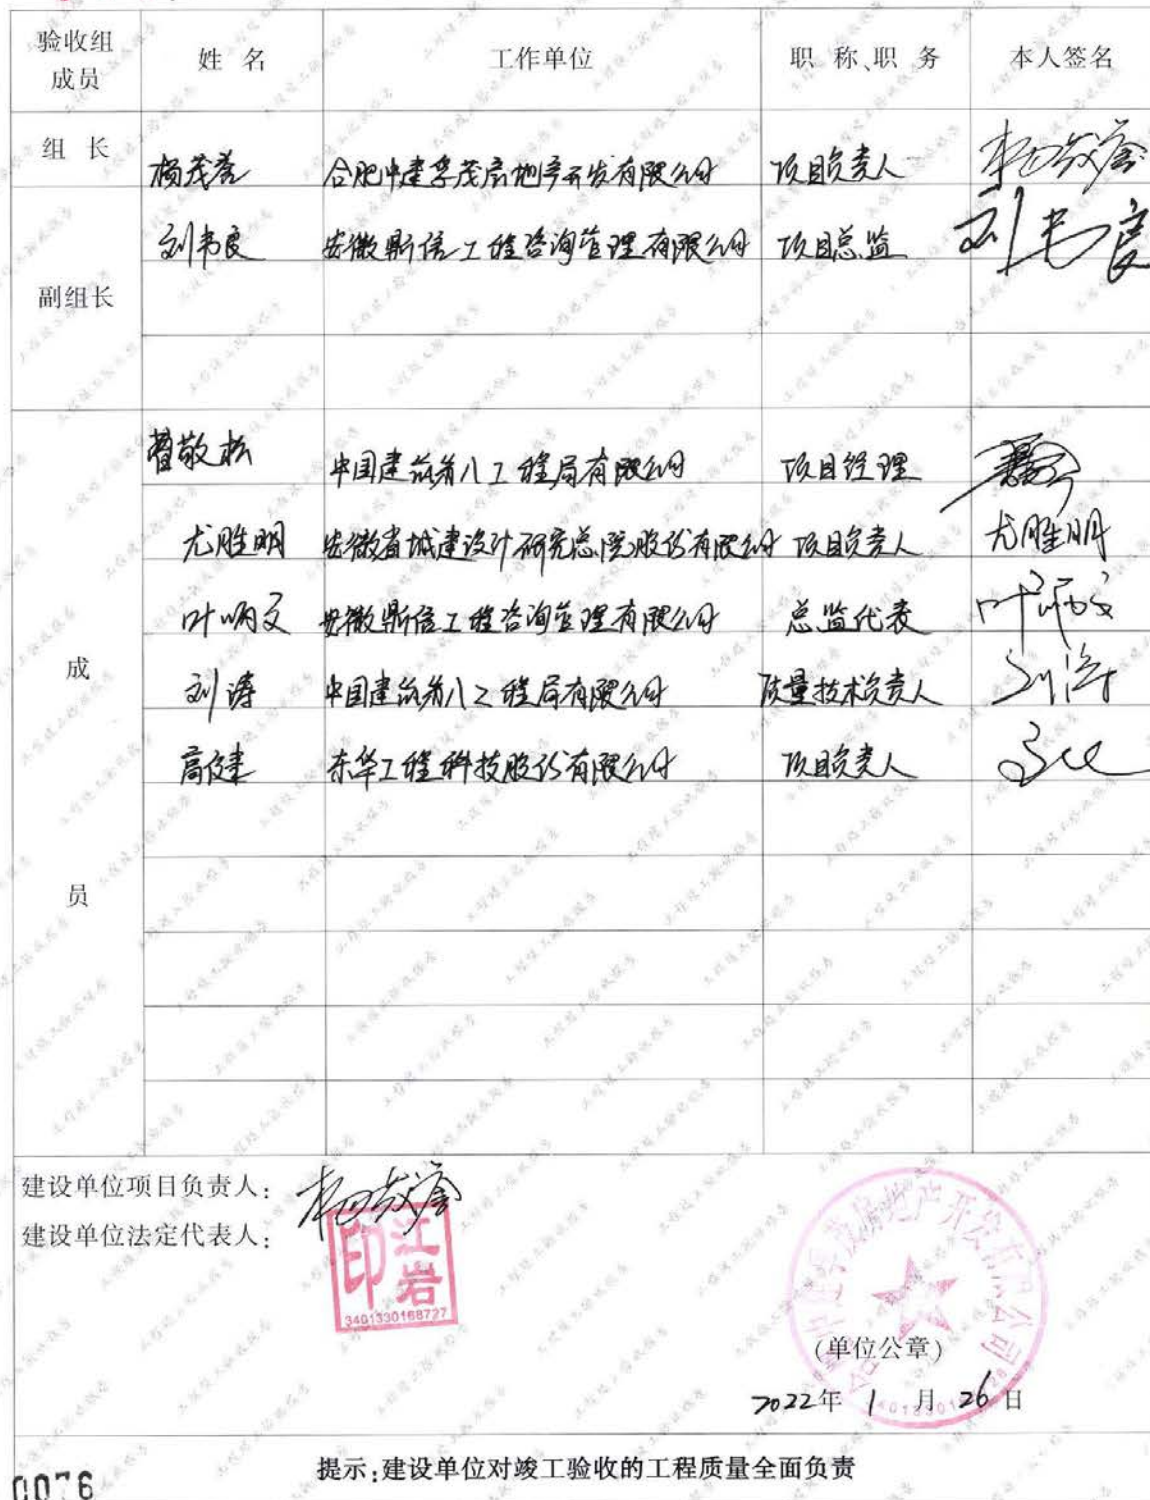 验收组成员 姓 名 工作单位 职 称、职 务 本人签名
组 长 杨茂誉 合肥中建孚茂房地产开发有限公司 项目负责人 杨茂誉
副组长 刘韦良 安徽鼎信工程咨询管理有限公司 项目总监 刘韦良
成员
曹敬松 中国建筑第八工程局有限公司 项目经理
尤胜明 安徽省城建设计研究总院股份有限公司 项目负责人 尤胜明
叶炳文 安徽鼎信工程咨询管理有限公司 总监代表 叶炳文
刘涛 中国建筑第八工程局有限公司 质量技术负责人 刘涛
高俊建 东华工程科技股份有限公司 项目负责人
建设单位项目负责人: 杨茂誉
建设单位法定代表人:
江岩印
3401330168727
房地产开发有限公司
(单位公章)
2022年 1 月 26 日
提示:建设单位对竣工验收的工程质量全面负责
0076